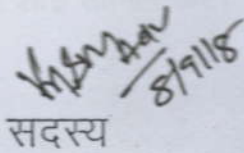 8/9/18
सदस्य